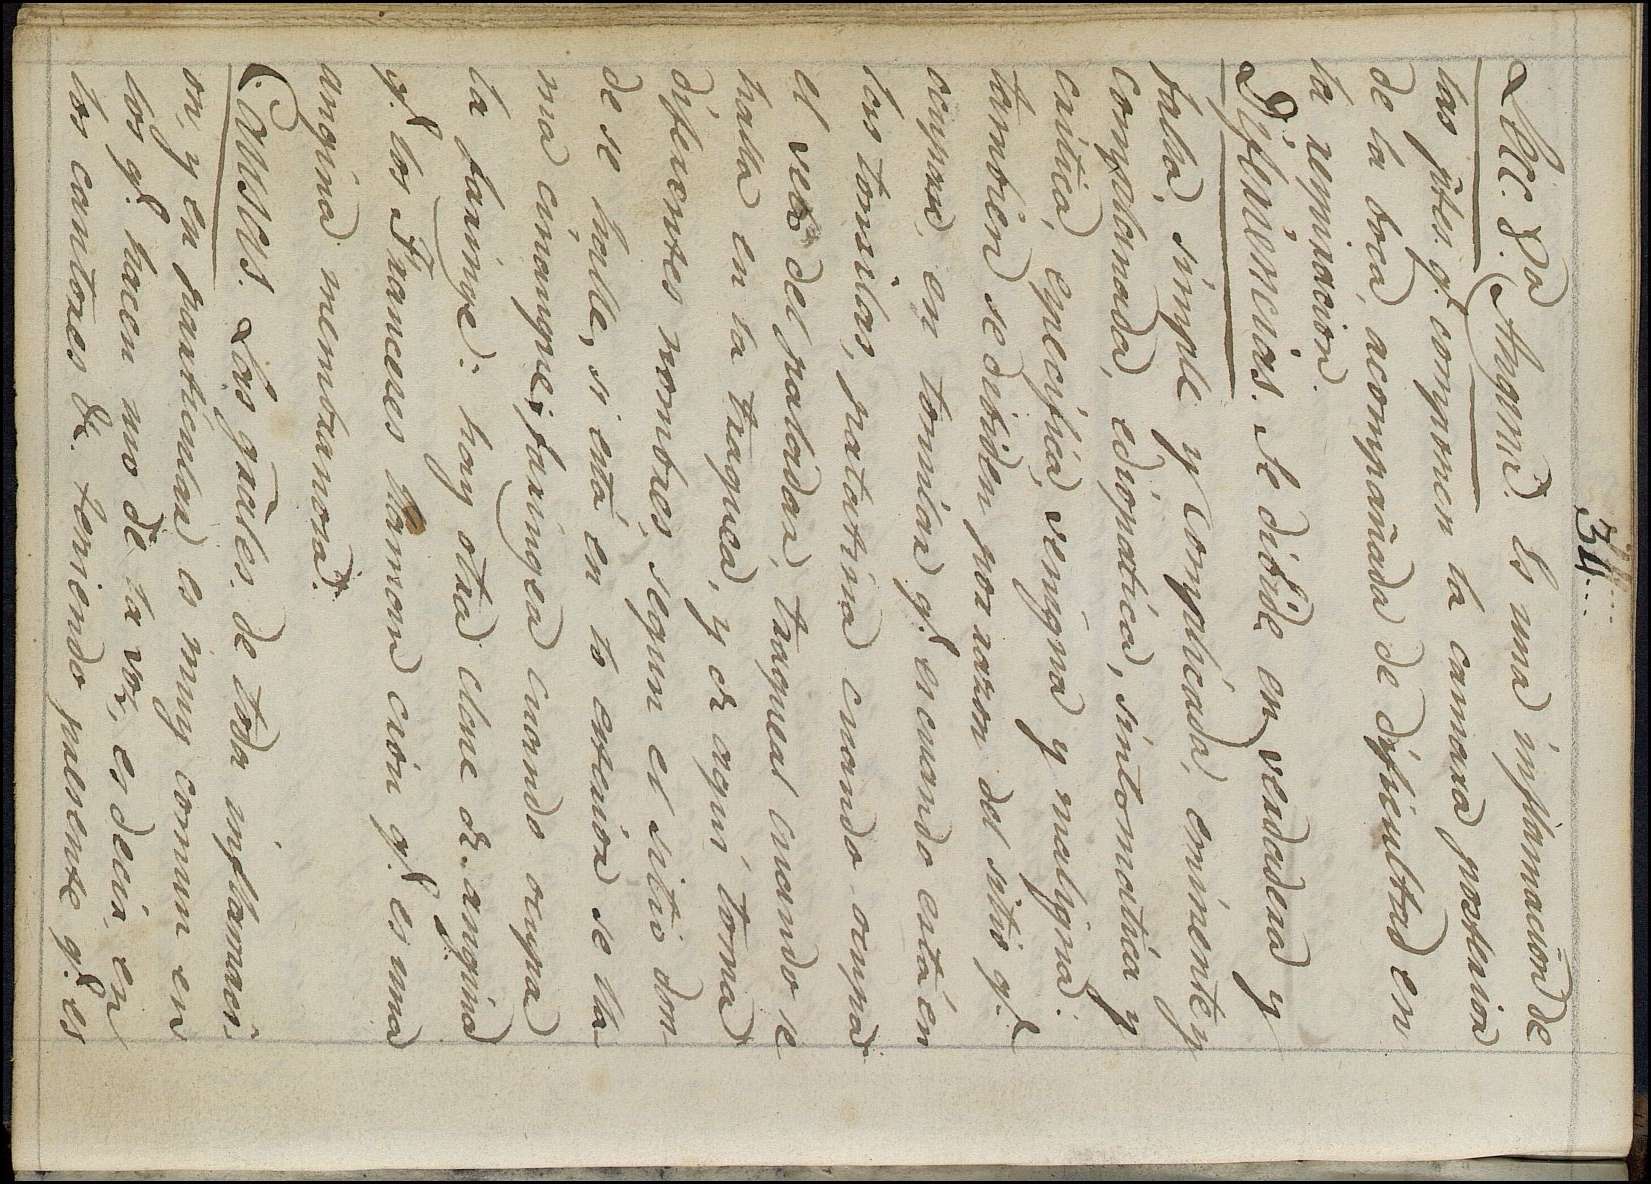 34...
Lecc. 8.a Angina. Es una inflamacion de
las ptes. q.e componen la camara posterior
de la boca, acompañada de dificultad en
la respiracion.
Diferencias. Se divide en verdadera y
falsa, simple y Complicada, eminente y
Complemada, ediopatica, sintomatica y
critica, especifica, venigna y maligna:
tambien se dividen por razon del sitio q.e
ocupan, en tonsilar q.e es cuando está en
las tonsilas, palatina cuando ocupa
el velo del paladar, traqueal cuando se
halla en la traquea, y de aqui toma
diferentes nombres, segun el sitio don
de se halle, si está en lo exterior se lla
ma cinangue, faringea cuando ocupa
la faringe: hay otra clase de angina
q.e los Franceses llaman crôn q.e es una
angina membranosa.
Causas. Las grâles. de toda inflamaci-
on, y en particular es muy comun en
los q.e hacen uso de la voz, es decir, en
los cantores &. teniendo presente q.e es